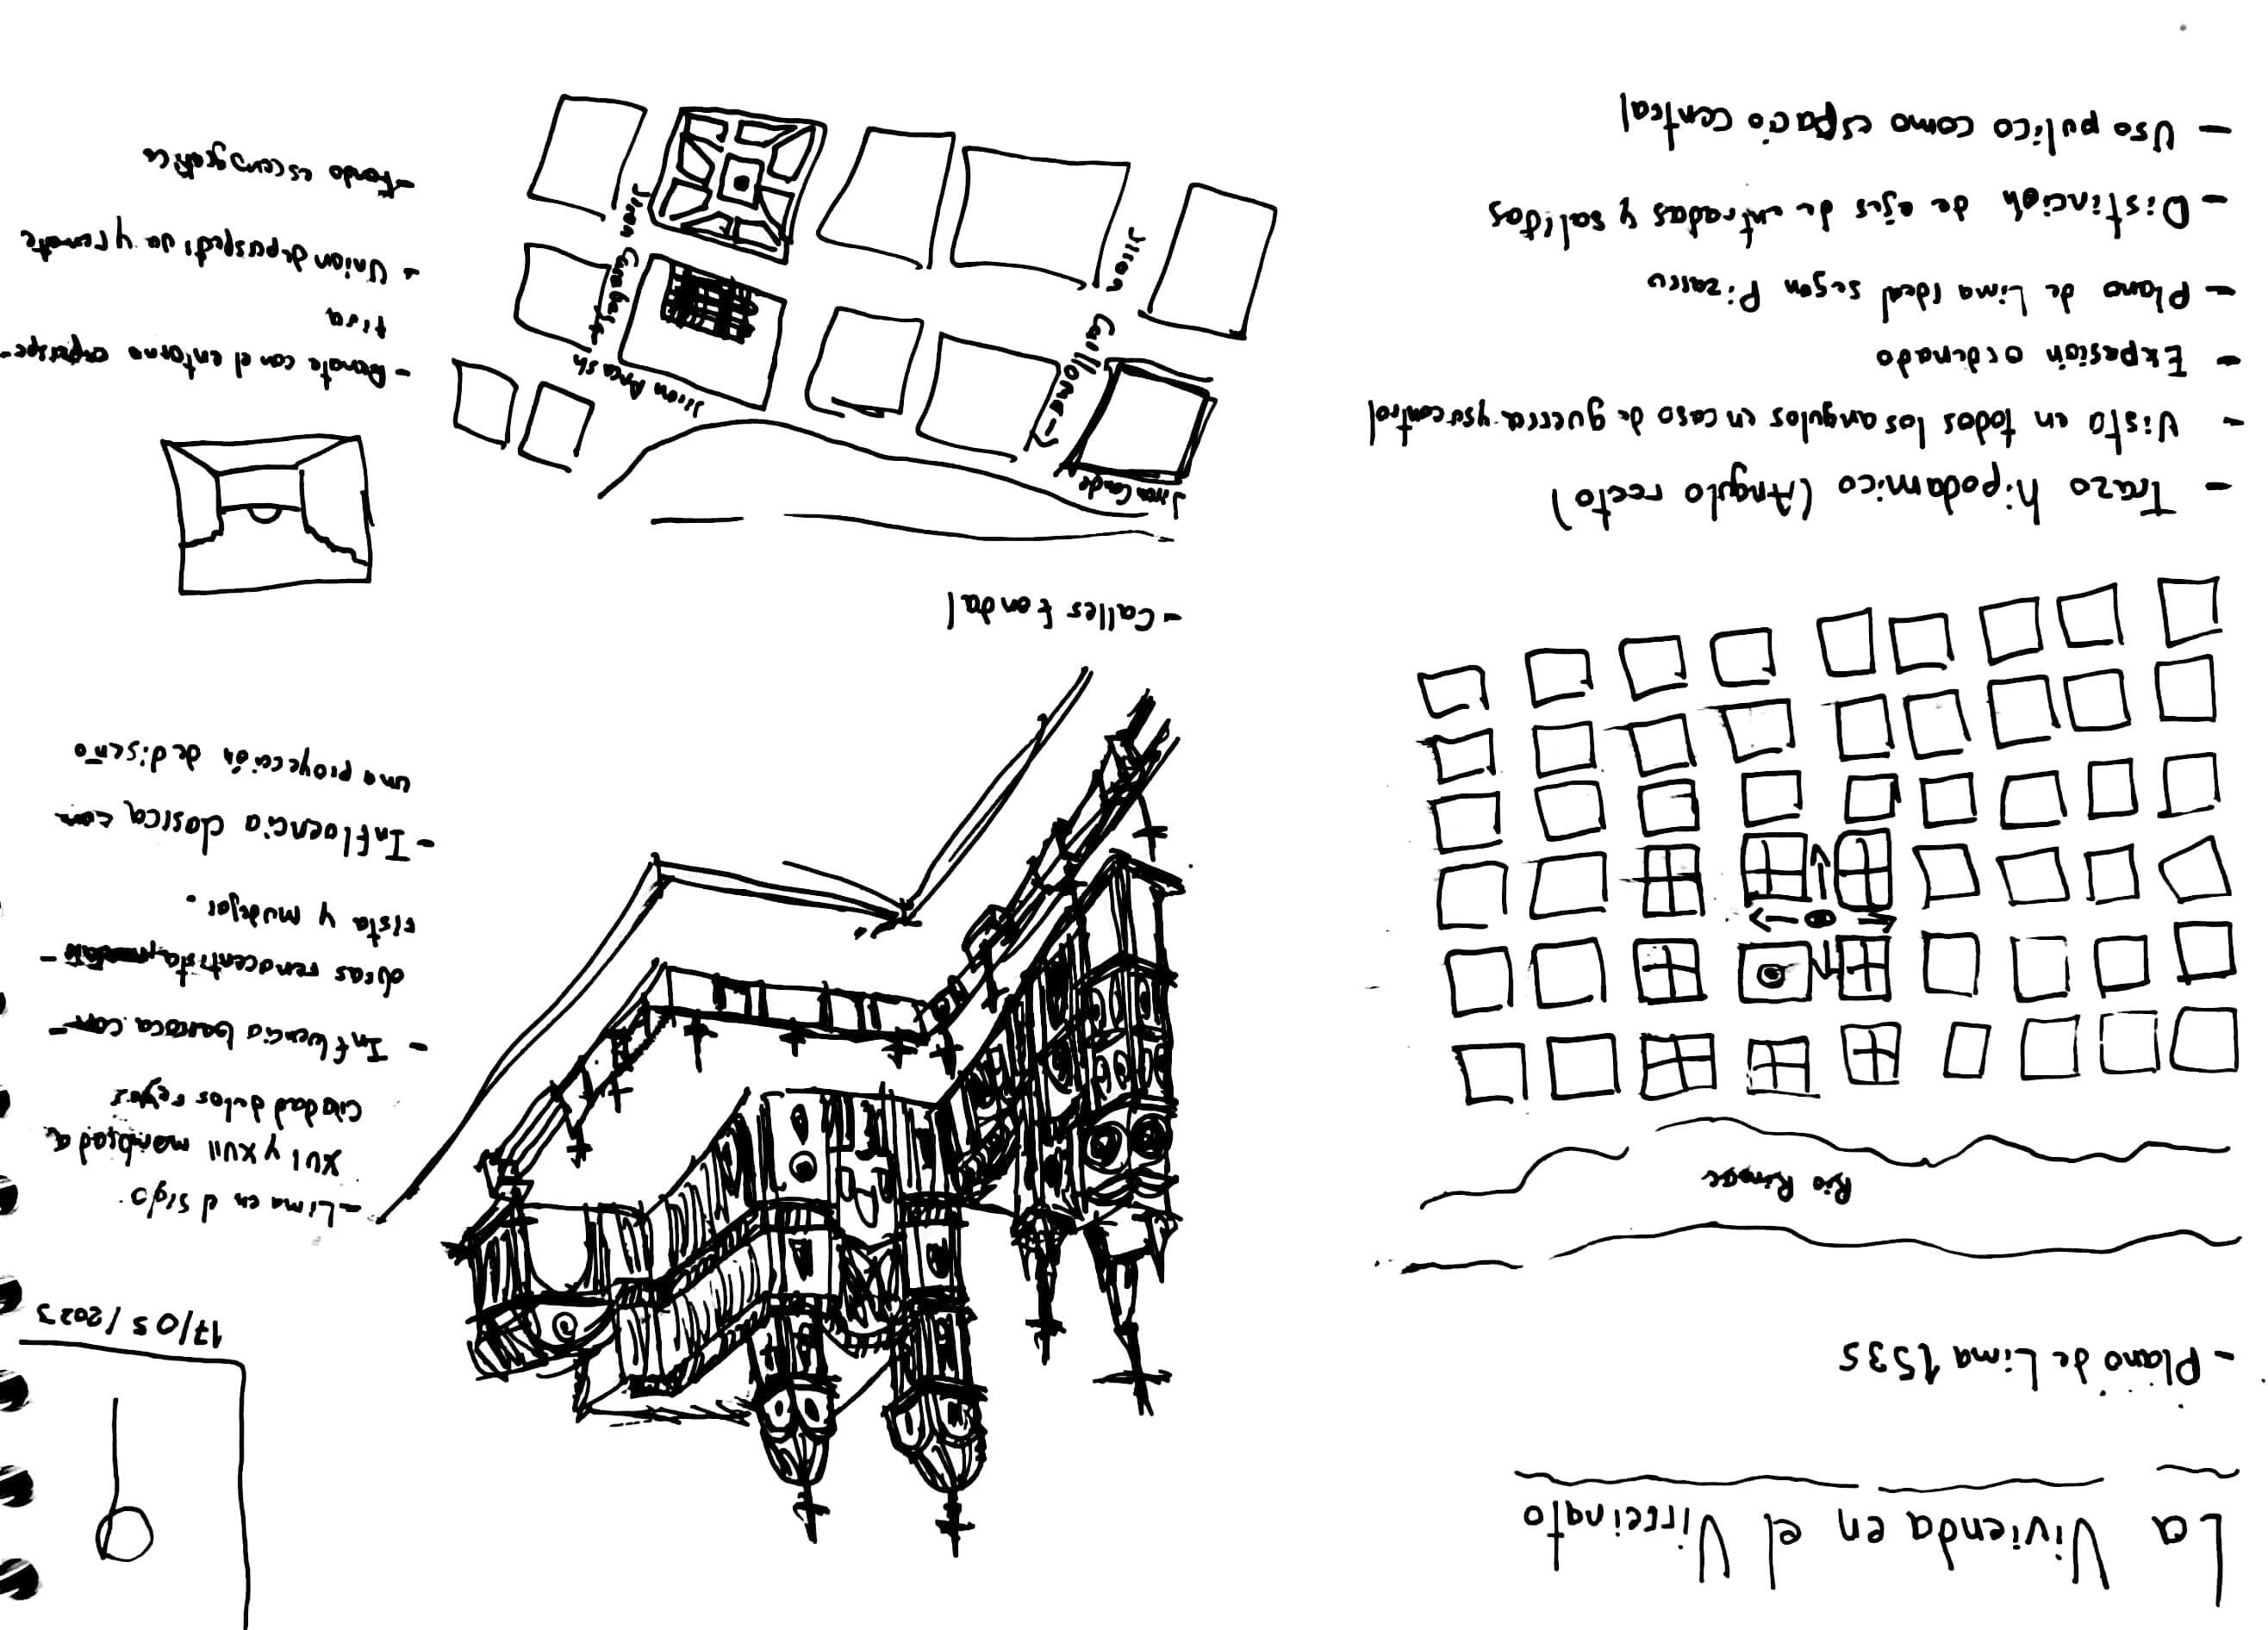 La Vivienda en el Virreinato
- Plano de Lima 1535
Rio Rimac
- Trazo hipodamico (Angulo recto)
- Vista en todos los angulos en caso de guerra y su control
- Expasión ordenado
- Plano de Lima Ideal segun Pizarro
- Distinción de ejes de entradas y salidas
- Uso pulico como espacio central
- Calles Fondal
Jiron
Jiron Caylloma
Jiron Ancash
Jiron Carabaya
9
17/05/2023
- Lima en el siglo
XVI y XVII
Ciudad de los reyes
- Influencia barroca con
renacentista
rista y mudejar.
- Influencia clasica, con
una proyección de diseño
- Remate con el entorno
tiva
- Union de y remate
- Fondo